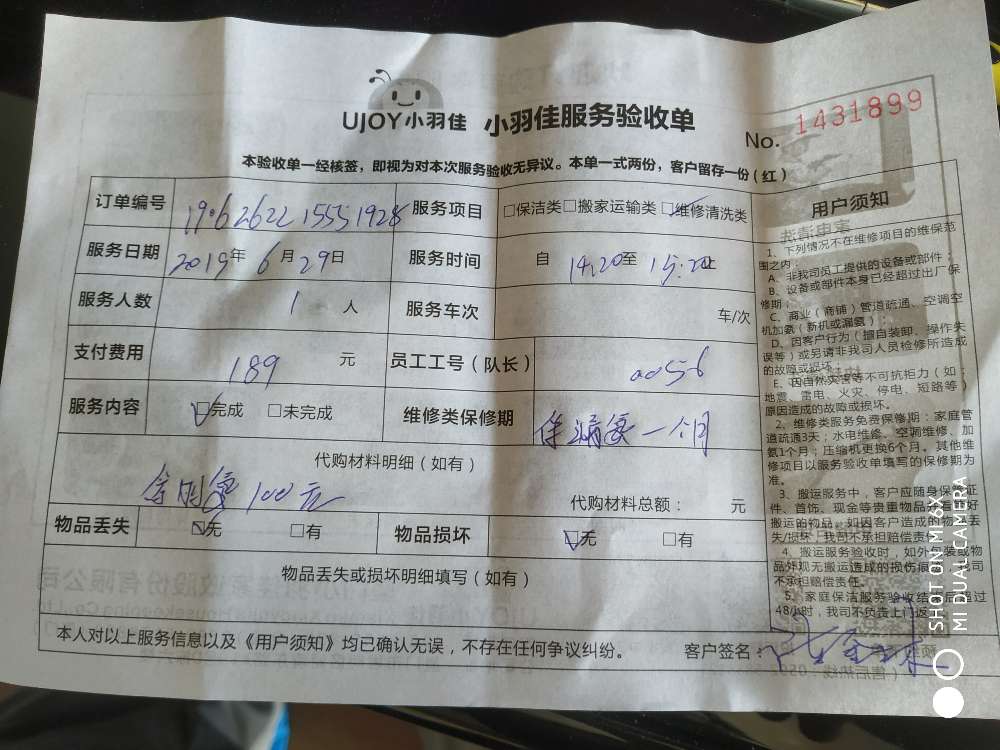 UJOY小羽佳 小羽佳服务验收单
No. 1431899
本验收单一经核签，即视为对本次服务验收无异议。本单一式两份，客户留存一份（红）
订单编号 服务项目 □保洁类□搬家运输类□维修清洗类
服务日期 2019年6月29日 服务时间 自 14:20至15:20止
服务人数 1 人 服务车次 车/次
支付费用 189 元 员工工号（队长） 0056
服务内容 □完成 □未完成 维修类保修期 一个月
代购材料明细（如有）
100元 代购材料总额： 元
物品丢失 □无 □有 物品损坏 □无 □有
物品丢失或损坏明细填写（如有）
本人对以上服务信息以及《用户须知》均已确认无误，不存在任何争议纠纷。 客户签名：
用户须知
1、下列情况不在维修项目的维保范
围之内：
A、非我司员工提供的设备或部件；
B、设备或部件本身已经超过出厂保
修期；
C、商业（商铺）管道疏通、空调空
机加氨（新机或漏氨）；
D、因客户行为（擅自装卸、操作失
误等）或另请非我司人员检修所造成
的故障或损坏；
E、因自然灾害等不可抗拒力（如：
地震、雷电、火灾、停电、短路等）
原因造成的故障或损坏。
2、维修类服务免费保修期：家庭管
道疏通3天；水电维修、空调维修、加
氨1个月；压缩机更换6个月。其他维
修项目以服务验收单填写的保修期为
准。
3、搬运服务中，客户应随身保管证
件、首饰、现金等贵重物品并看管好
搬运的物品。如因客户造成的物品丢
失/损坏，我司不承担赔偿责任。
4、搬运服务验收时，如外包装或物
品外观无搬运造成的损伤痕迹，我司
不承担赔偿责任。
5、家庭保洁服务验收结束后超过
48小时，我司不负责上门返工。
SHOT ON MI 6X
MI DUAL CAMERA